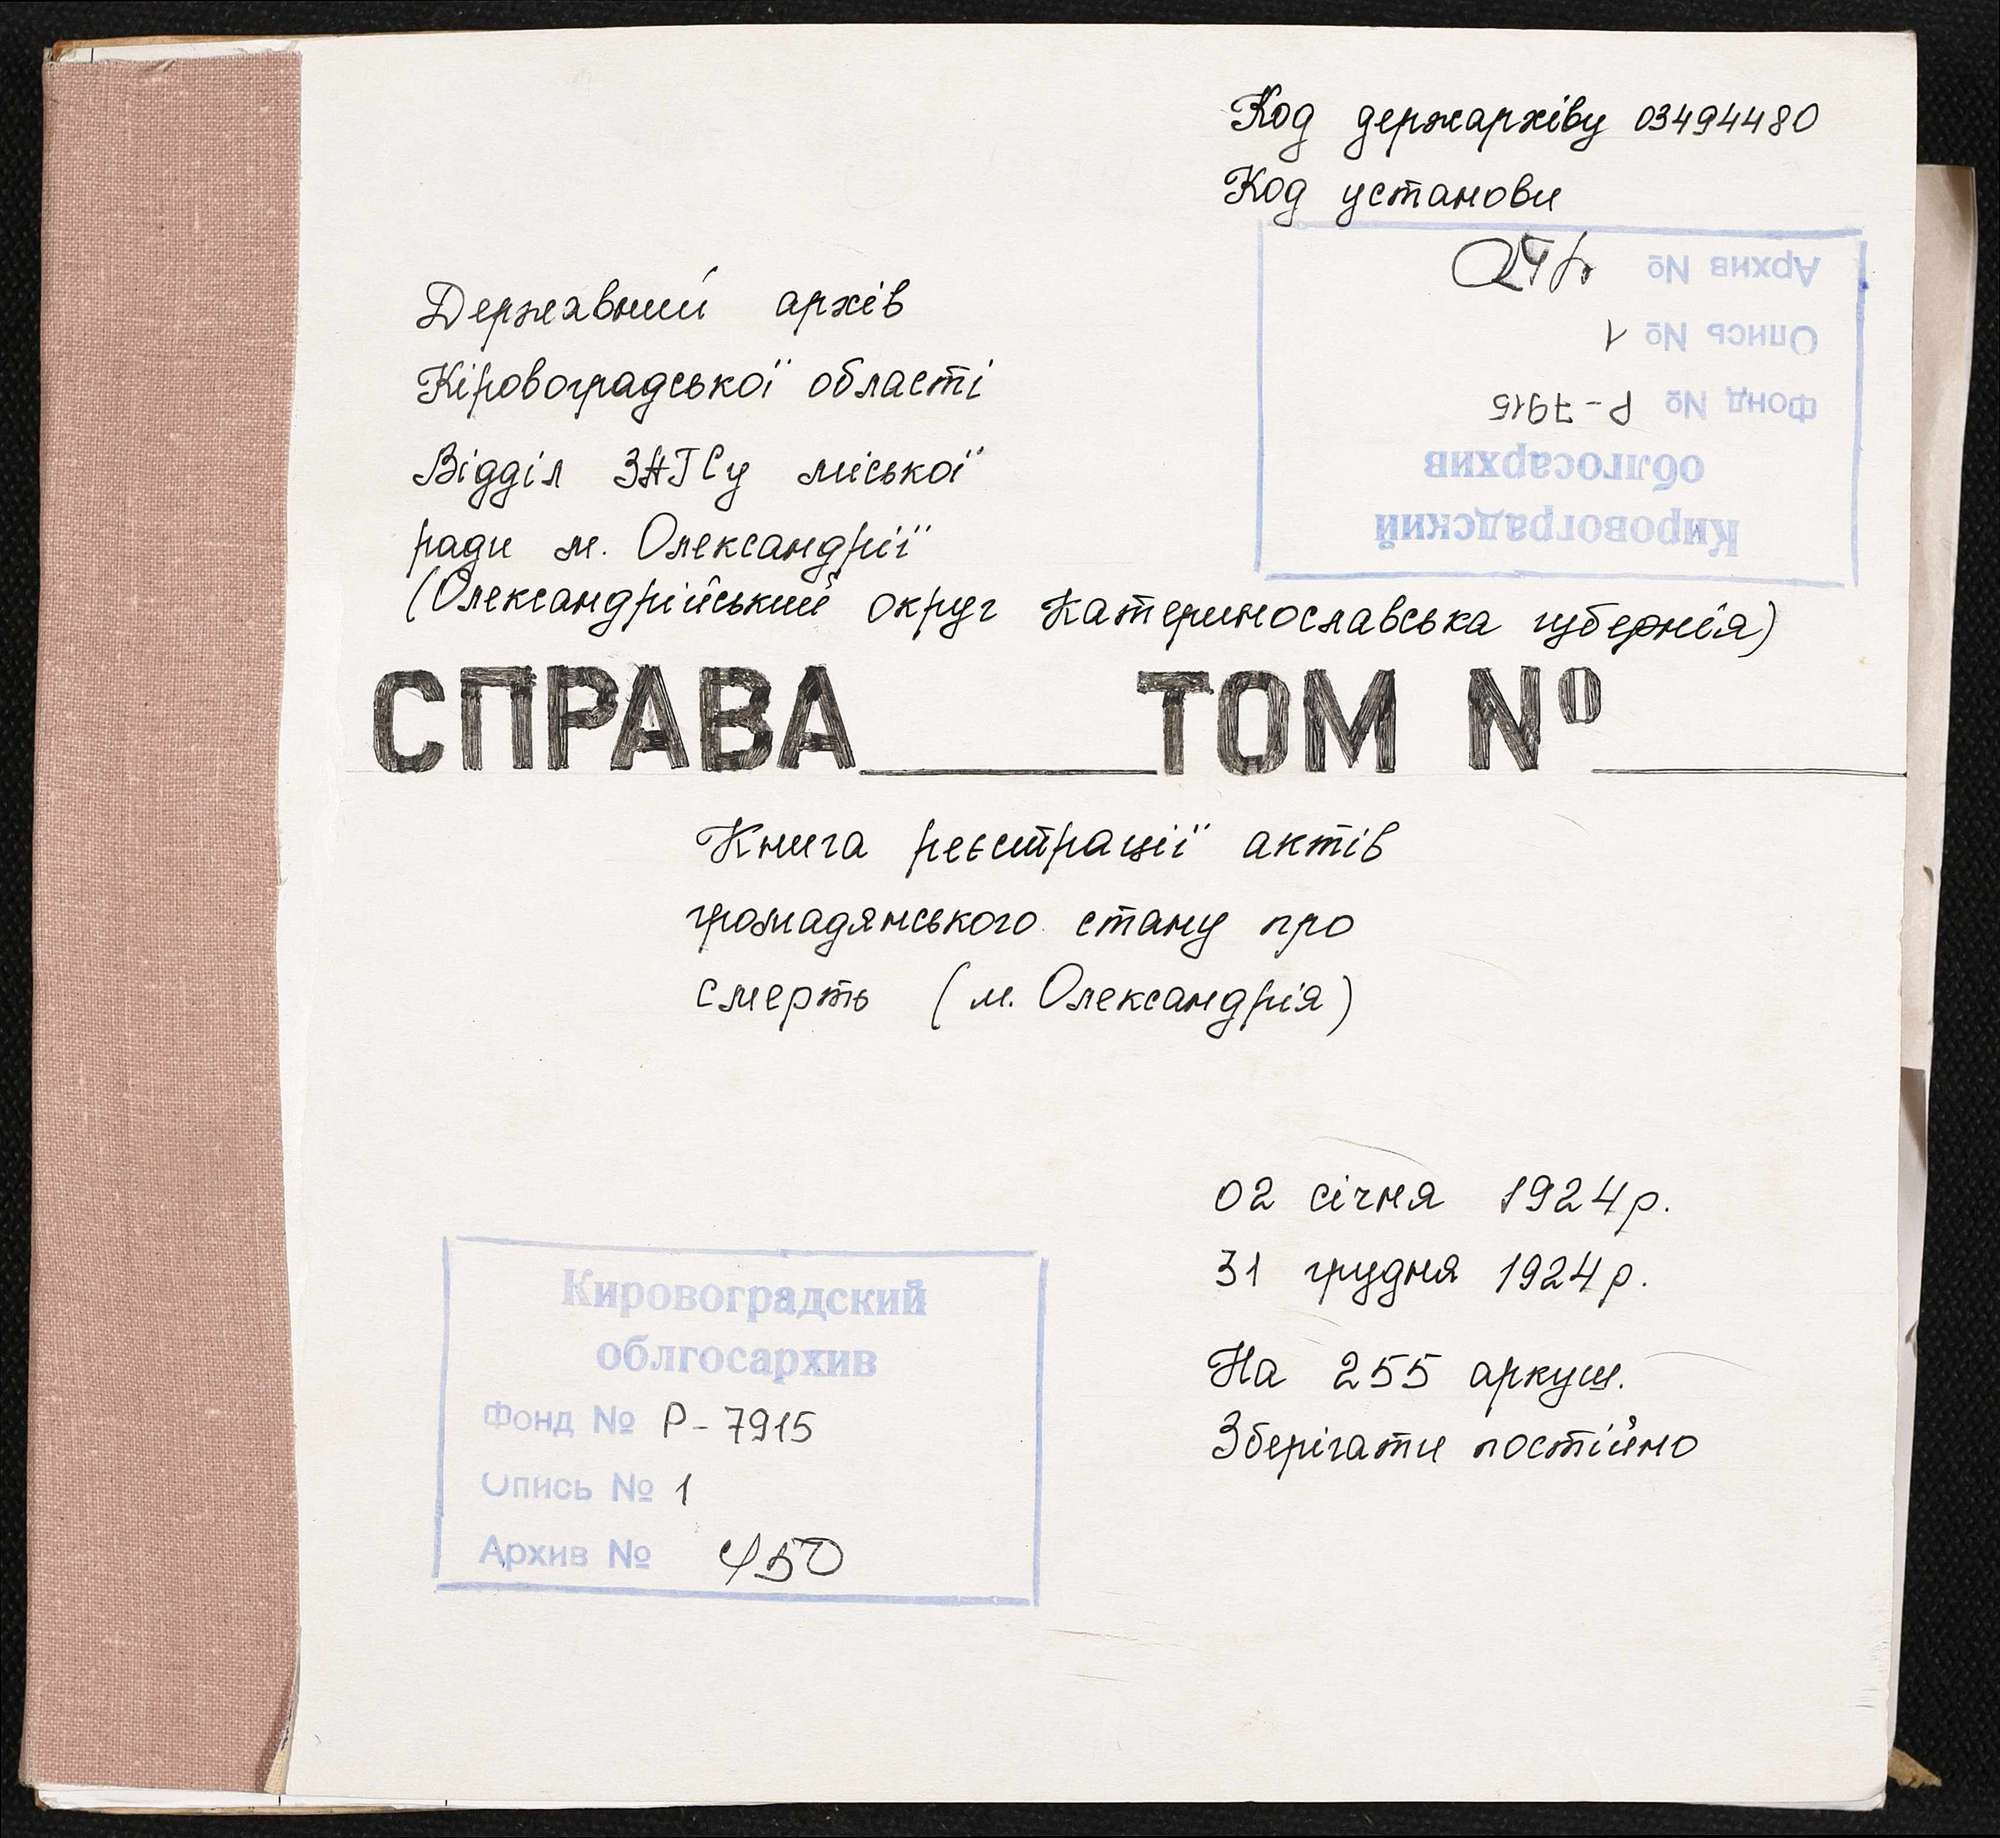 Код держархіву 03494480
Код установи
Кировоградский
облгосархив
Фонд № Р-7915
Опись № 1
Архив № 450
Державний архів
Кіровоградської області
Відділ ЗАГСу міської
ради м. Олександрії
(Олександрійський округ Катеринославська губернія)
СПРАВА____ТОМ №____
Книга реєстрації актів
громадянського стану про
смерть (м. Олександрія)
02 січня 1924 р.
31 грудня 1924 р.
На 255 аркуш.
Зберігати постійно
Кировоградский
облгосархив
Фонд № Р-7915
Опись № 1
Архив № 450